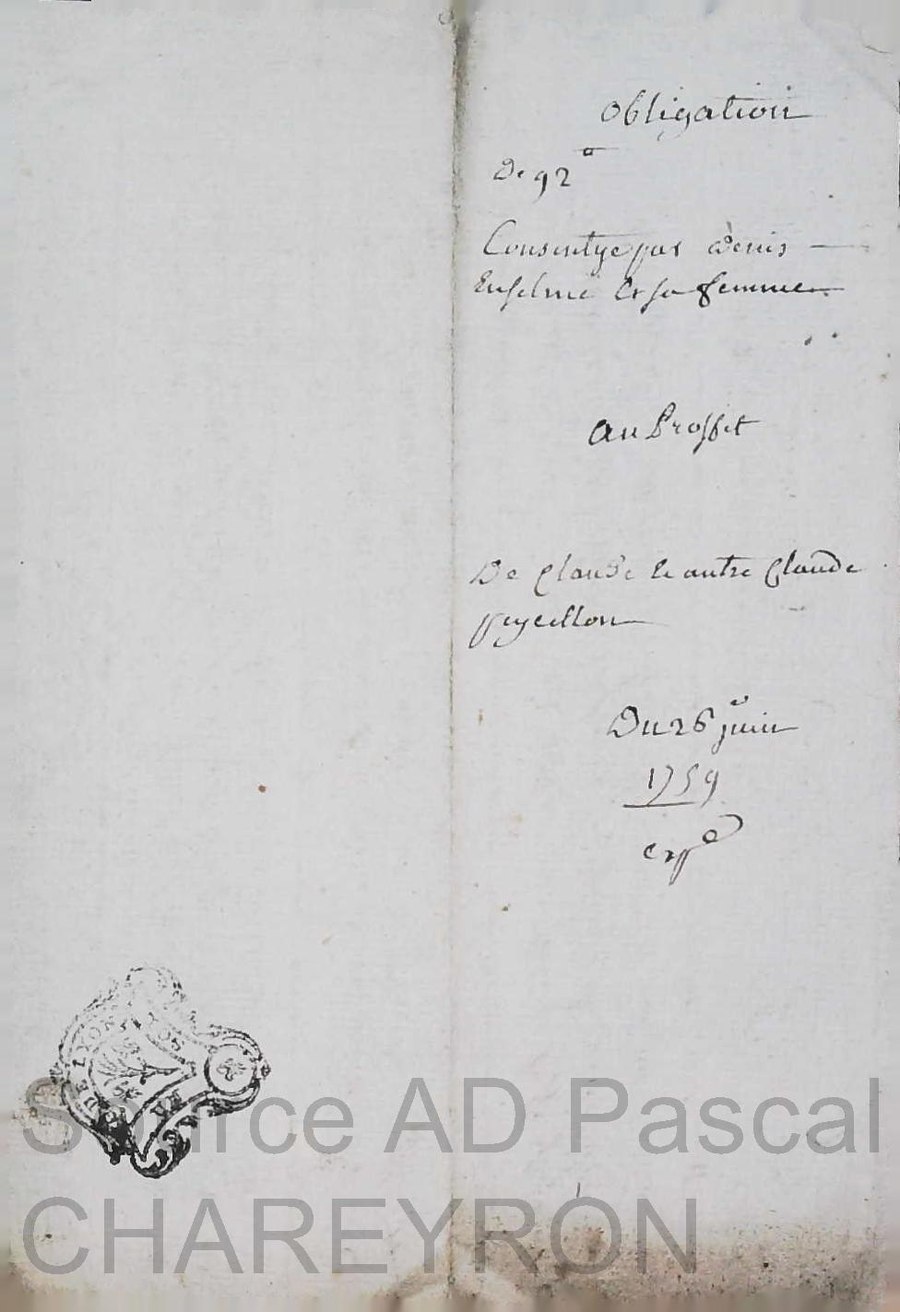 Obligation
De 92 tt
Consentye par Denis
Enselme Et sa femme
Au Proffit
De Claude Et autre Claude
Peyellon
Du 26e juin
1759
Expé
DE LYON
Source AD Pascal
CHAREYRON